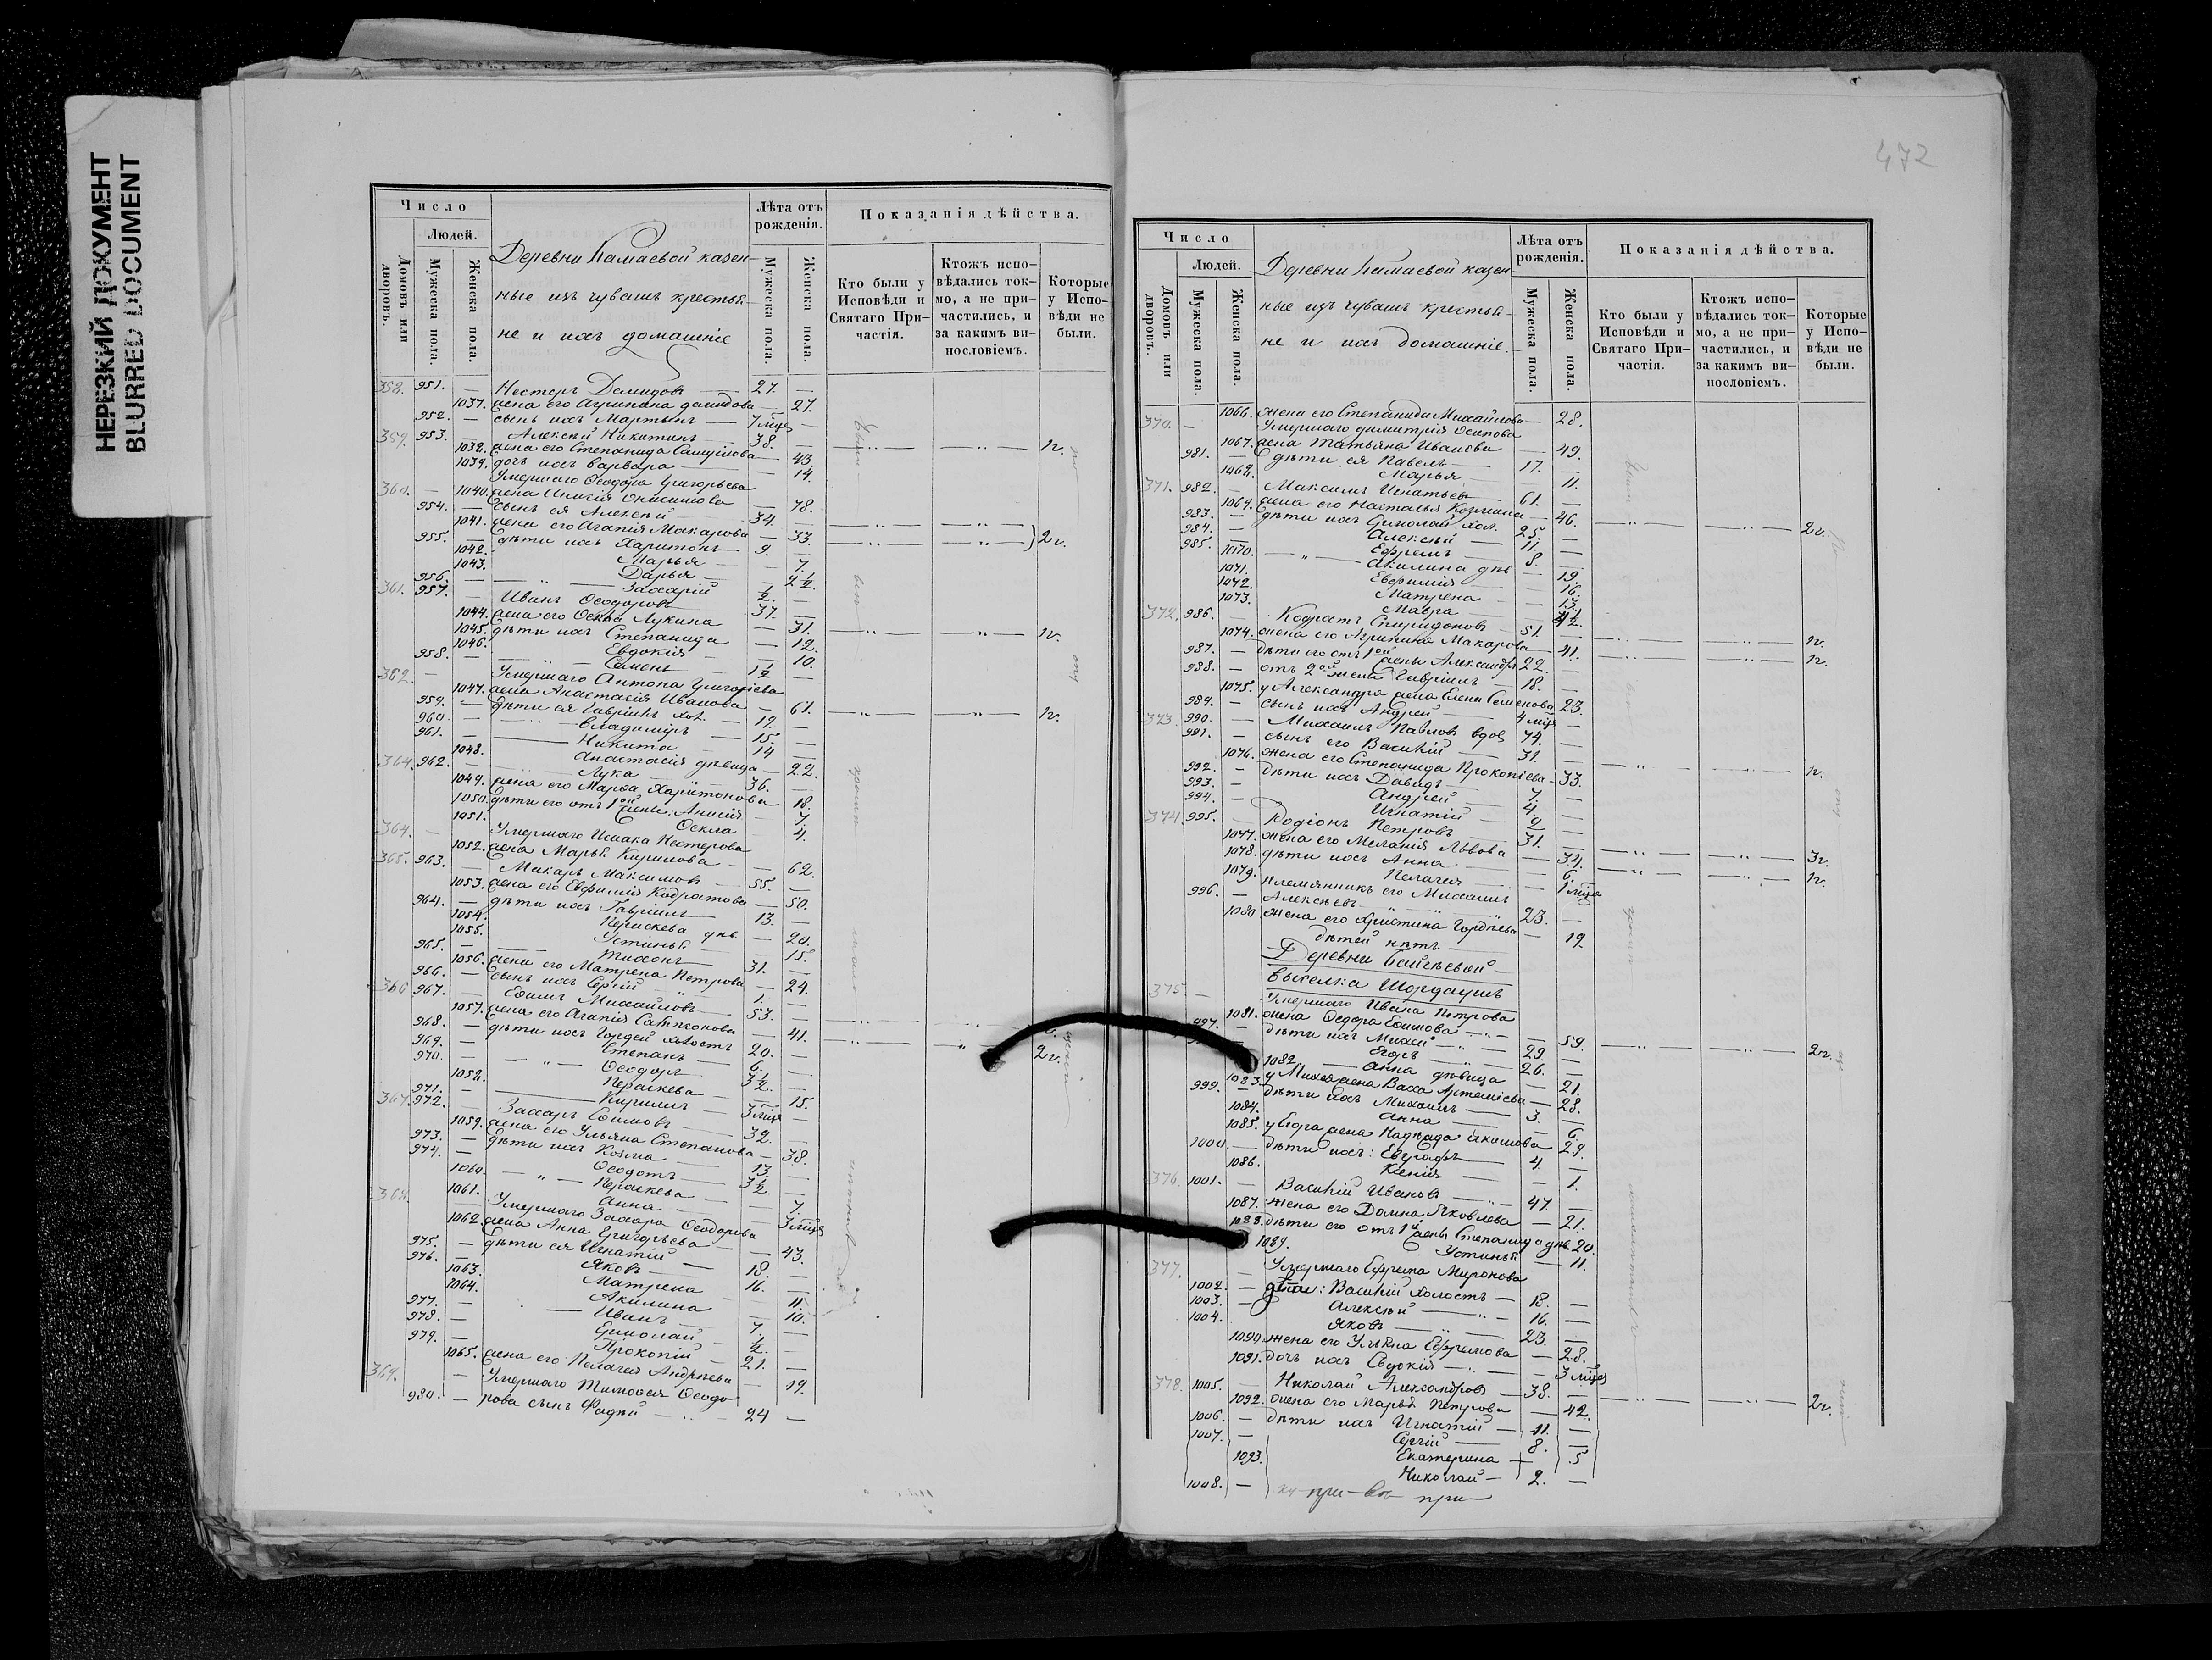 НЕРЕЗКИЙ ДОКУМЕНТ
BLURRED DOCUMENT
Число
Людей.
Домовъ или дворовъ.
Мужеска пола.
Женска пола.
Деревни Камаевой казен-
ные изъ чувашъ крестья-
не и ихъ домашніе
Лѣта отъ рожденія.
Мужеска пола.
Женска пола.
Показанія дѣйства.
Кто были у Исповѣди и Святаго Причастія.
Ктожъ исповѣдались токмо, а не причастились, и за какимъ винословіемъ.
Которые у Исповѣди не были.
358. 951. — Нестеръ Демидовъ — 27. —
1037. жена его Агрипина Демидова — 27.
952. — сынъ ихъ Мартинъ — 7 мѣц —
359. 953. — Алексѣй Никитинъ — 38. —
1038. жена его Степанида Самуйлова — 43. 1 г.
1039. дочь ихъ Варвара — 14.
Умершаго Ѳеодора Григорьева
360. — 1040. жена Онисимова — 78.
954. — сынъ ея Алексѣй 34. —
1041. жена его Агапія Макарова — 33.
955. — дѣти ихъ Харитонъ 9. — 2 г.
1042. Марья — 7.
1043. Дарья — 2½
956. — Захарій ½ —
361. 957. — Иванъ Ѳеодоровъ 37. —
1044. жена его Ѳекла Лукина — 31.
1045. дѣти ихъ Степанида — 12. 1 г.
1046. Евдокія — 10.
958. — Семенъ 1½ —
362. — Умершаго Антона Григорьева
1047. жена Анастасія Иванова — 61.
959. — дѣти ея Гавріилъ хол. — 19. — 1 г.
960. — Владиміръ — 15. —
961. — Никита 14 —
1048. Анастасія дѣвица — 22.
364. 962. — Лука 36. —
1049. жена его Марѳа Харитонова — 18.
1050. дѣти его отъ 1ой жены: Анисія — 7.
1051. Ѳекла — 4.
364. — Умершаго Исаака Нестерова
1052. жена Марья Кирилова — 62.
365. 963. — Макаръ Максимовъ 55. —
1053. жена его Евфимія Кодратова — 50.
964. — дѣти ихъ Гавріилъ — 13. —
1054. Пераскева дѣв. — 20.
1055. Устинья — 15.
965. — Тихонъ 31. —
1056. жена его Матрена Петрова — 24.
966. — сынъ ихъ Сергій 1. —
366 967. — Ефимъ Михайловъ 53. —
1057. жена его Агапія — 41.
968. — дѣти ихъ Гордей холостъ 20. —
969. — Степанъ — 6. — 2 г.
970. — Ѳеодоръ 3½ —
1058. Пераскева — 15.
971. — Кирилъ 3 мѣц —
367. 972. — Захаръ Ефимовъ 32. —
1059. жена его Ульяна Степанова — 38.
973. — дѣти ихъ Козма 13. —
974. — Ѳеодотъ 3½ —
1060. Пераскева — 7.
1061. Анна — 3 мѣц
368. Умершаго Захара Ѳеодорова
1062. жена Анна Григорьева — 43.
975. — дѣти ея Игнатій — 18. —
976. — Яковъ 16. —
1063. Матрена — 11.
1064. Акилина — 10.
977. — Иванъ 7. —
978. — Ермолай —
979. — Прокопій 21. —
1065. жена его Пелагея Андреева — 19.
369. — Умершаго Тимоѳея Ѳеодо-
980. — рова сынъ Фадѣй 24 —
472
Число
Людей.
Домовъ или дворовъ.
Мужеска пола.
Женска пола.
Деревни Камаевой казен
ные изъ чувашъ крестья-
не и ихъ домашніе.
Лѣта отъ рожденія.
Мужеска пола.
Женска пола.
Показанія дѣйства.
Кто были у Исповѣди и Святаго Причастія.
Ктожъ исповѣдались токмо, а не причастились, и за какимъ винословіемъ.
Которые у Исповѣди не были.
1066. жена его Степанида Михайлова — 28.
370. — Умершаго Димитрія Осипова
1067. жена Татьяна Иванова — 49.
981. — дѣти ея Павелъ — 17. —
1068. Марья — 11.
371. 982. — Максимъ Игнатьевъ 61. —
1069. жена его Наталья Козмина — 46.
983. — дѣти ихъ Ермолай хол. 25. — 2 г.
984. — Алексѣй — 11. —
985. — Ефремъ 8. —
1070. Акилина дѣв — 19.
1071. Евфимія — 16.
1072. Матрена — 13.
1073. Мавра —
372. 986. — Кодратъ Спиридоновъ 51. — 1 г.
1074. жена его Агрипина Макарова — 41. 1 г.
987. — дѣти его отъ 1ой жены Александръ 22. —
988. — отъ 2ой жены Гавріилъ — 18. —
1075. у Александра жена Елена Семенова 23.
989. — сынъ ихъ Андрей 4 мѣц
373. 990. — Михаилъ Павловъ вдов 74. —
991. — сынъ его Василій 31. —
1076. жена его Степанида Прокопіева — 33. 1 г.
992. — дѣти ихъ Давидъ 7. —
993. — Андрей 4. —
994. — Игнатій 2 —
374. 995. — Родіонъ Петровъ 31. —
1077. жена его Меланія Львова — 34. 3 г.
1078. дѣти ихъ Анна — 6. 1 г.
1079. Пелагея — 1 мѣца
996. — племянникъ его Михаилъ
Алексѣевъ 23. —
1080 жена его Христина Гордѣева — 19.
дѣтей нѣтъ
Деревни Байгѣевой
выселка Шордаушъ
375. — Умершаго Ивана Петрова
1081. жена Ѳедора Ефимова — 59.
997. — дѣти ихъ 29. — 2 г.
Егоръ 26. —
1082 Анна дѣвица — 21.
1083. у жена Васса Артеміева — 28.
999. — дѣти ихъ Михаилъ 3. —
1084. Анна — 6.
1085. у Егора жена Надежда Якимова 29.
1000. — дѣти ихъ: Евграфъ 4. —
1086. Ксенія — 1.
376. 1001. — Василій Ивановъ 47. —
1087. жена его Домна Яковлева — 21.
1088. дѣти его отъ 1й жены Степанида дѣв. 20.
1089. Устинья — 11.
377. — Умершаго Ефрема Миронова
1002. — дѣти: Василій холостъ — 18. —
1003. — Алексѣй 16. —
1004. Яковъ 23. —
1090. жена его Ульяна Ефремова — 28.
1091. дочь ихъ Евдокія — 3 мѣцев
378. 1005. — Николай Александровъ — 38. —
1092. жена его Марья Петрова — 42. 2 г.
1006. — дѣти ихъ Игнатій — 11. —
1007. — Сергій — 8. —
1093. Екатерина — 5
1008. — Николай — 2. —